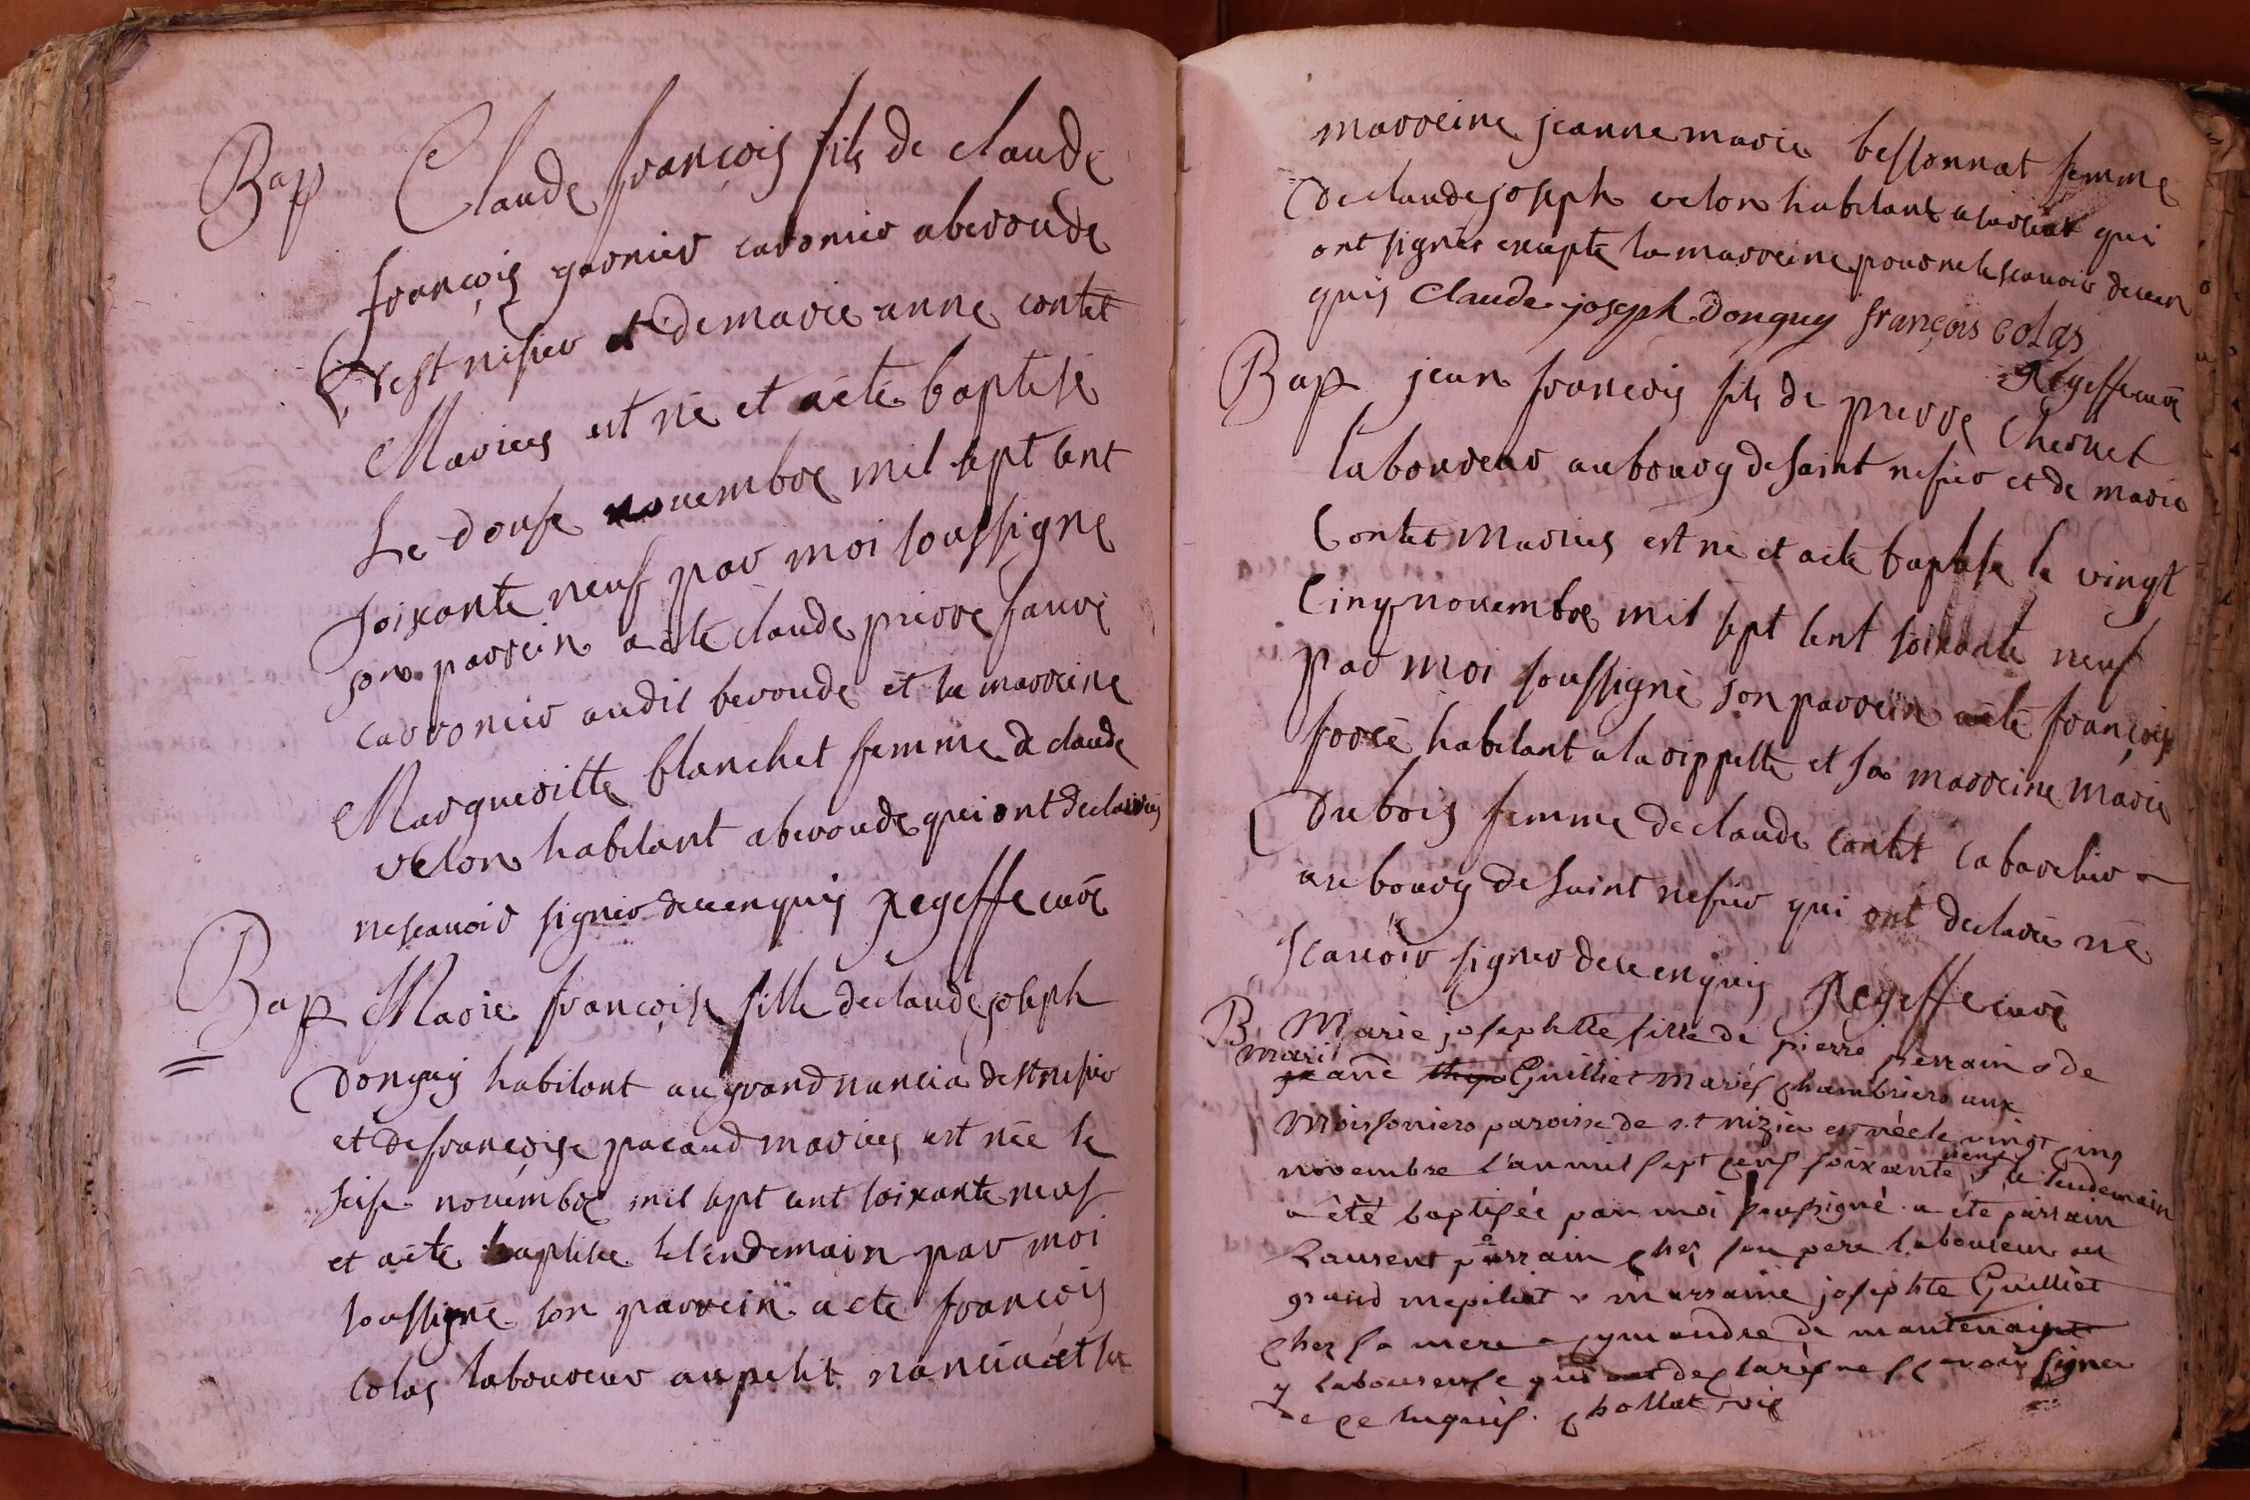 Bap Claude françois fils de claude
françois garnier caronier aberoude
et de marie anne contet
Mariés est né et aété baptisé
Le douse novembre mil sept cent
soixante neuf par moi soussigné
son parrein aété claude pierre faure
carronier audit beroude et la marreine
Margueritte blanchet femme de claude
velon habitant aberoude qui ont declarés
nescavoir signer de ce enquis Regeffe curé
Bap Marie françoise fille declaude joseph
Donguy habitant au grand nancia de st nisier
et defrançoise pacaud mariés est née le
seise novembre mil sept cent soixante neuf
et aété baptisée le lendemain par moi
soussigné son parrein aété françois
Colas laboureur au petit nancia et la
marreine jeanne marie bessonnat femme
De claude joseph velon habitant qui
ont signés excepté la marreine pour ne le scavoir de ce en
quis Claude joseph Donguy françois colas
Regeffe curé
Bap jean françois fils de pierre Chernet
laboureur au bourg de saint nisier et de marie
Contet Mariés est né et aété baptisé le vingt
Cinq novembre mil sept cent soixante neuf
par moi soussigné son parrein aété françois
forré habitant a la rippette et sa marreine marie
Dubois femme de claude contet cabaretier
au bourg de saint nisier qui ont declaré ne
scavoir signer de ce enquis Regeffe curé
B Marie josephette fille de pierre perrain & de
mari
jeanne Guilliet mariés chambriers aux
Moissoniers paroisse de st nizier est née le vingt cinq
novembre l'an mil sept cens soixante neuf & le lendemain
a été baptisée par moi soussigné. a été parrain
Laurent perrain chez son pere laboureur au
grand mepiliat & marraine josephte Guilliet
chez sa mere
laboureuse qui ont declarés ne scavoir signer
de ce enquis. chollat vic